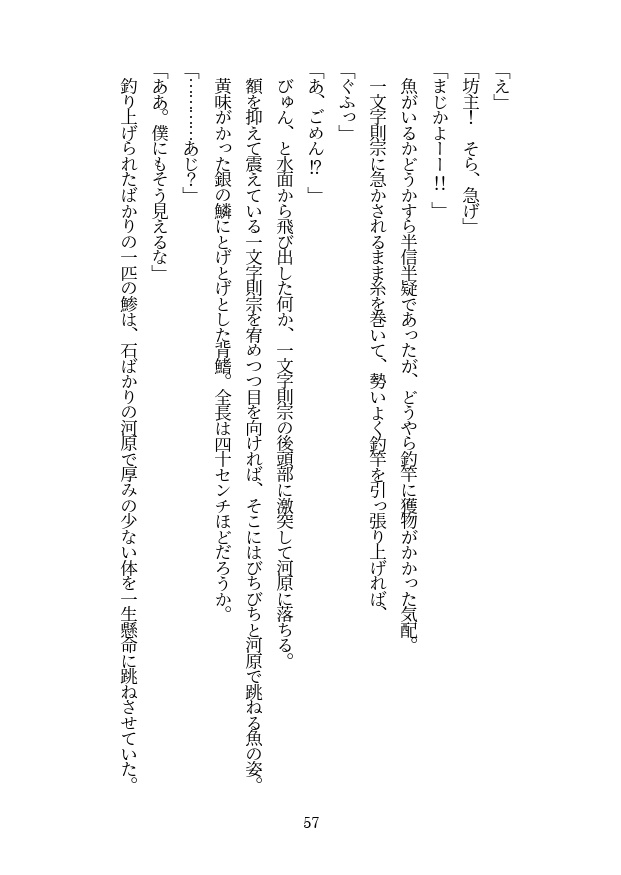 「え」
「坊主！　そら、急げ」
「まじかよーー!!」
魚がいるかどうかすら半信半疑であったが、どうやら釣竿に獲物がかかった気配。
一文字則宗に急かされるまま糸を巻いて、勢いよく釣竿を引っ張り上げれば、
「ぐふっ」
「あ、ごめん!?」
びゅん、と水面から飛び出した何か、一文字則宗の後頭部に激突して河原に落ちる。
額を抑えて震えている一文字則宗を宥めつつ目を向ければ、そこにはびちびちと河原で跳ねる魚の姿。
黄味がかった銀の鱗にとげとげとした背鰭。全長は四十センチほどだろうか。
「…………あじ？」
「ああ。僕にもそう見えるな」
釣り上げられたばかりの一匹の鯵は、石ばかりの河原で厚みの少ない体を一生懸命に跳ねさせていた。
57